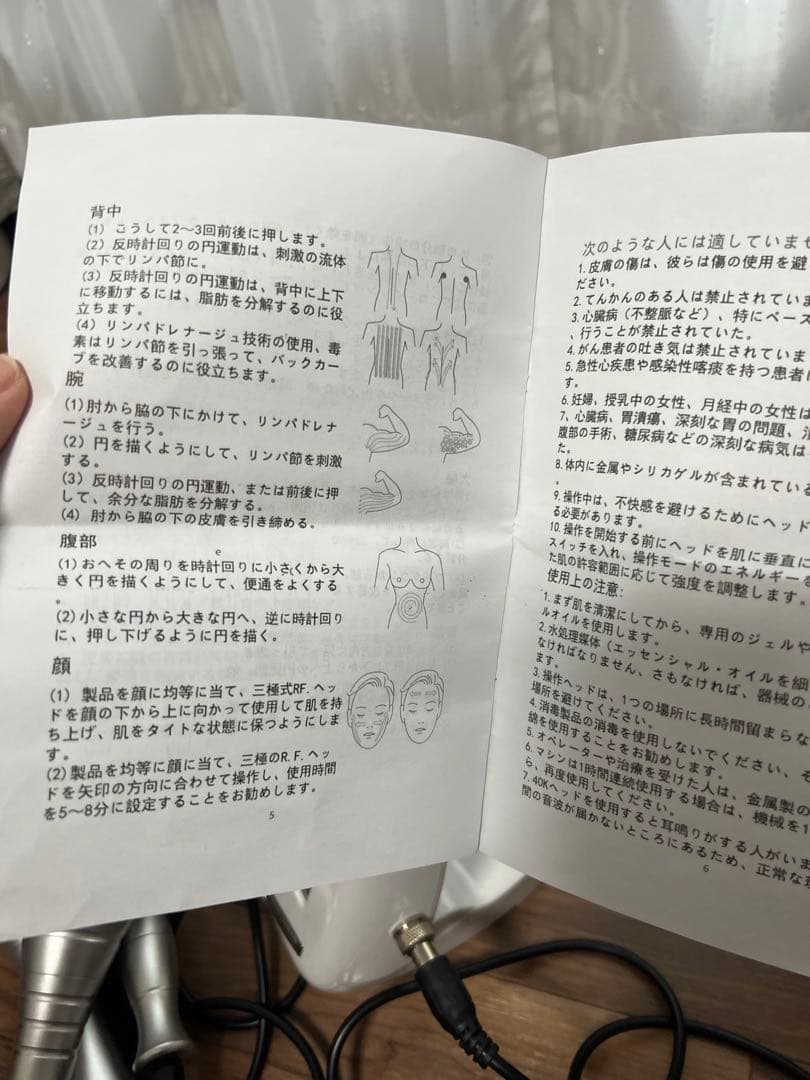 背中
(1) こうして2～3回前後に押します。
(2) 反時計回りの円運動は、刺激の流体
の下でリンパ節に。
(3) 反時計回りの円運動は、背中に上下
に移動するには、脂肪を分解するのに役
立ちます。
(4) リンパドレナージュ技術の使用、毒
素はリンパ節を引っ張って、バックカー
ブを改善するのに役立ちます。
腕
(1)肘から脇の下にかけて、リンパドレナ
ージュを行う。
(2) 円を描くようにして、リンパ節を刺激
する。
(3) 反時計回りの円運動、または前後に押
して、余分な脂肪を分解する。
(4) 肘から脇の下の皮膚を引き締める。
腹部
e
(1)おへその周りを時計回りに小さくから大
きく円を描くようにして、便通をよくする
。
(2)小さな円から大きな円へ、逆に時計回り
に、押し下げるように円を描く。
顔
(1) 製品を顔に均等に当て、三極式RF.ヘッ
ドを顔の下から上に向かって使用して肌を持
ち上げ、肌をタイトな状態に保つようにしま
す。
(2)製品を均等に顔に当て、三極のR.F.ヘッ
ドを矢印の方向に合わせて操作し、使用時間
を5～8分に設定することをお勧めします。
5
次のような人には適していませ
1.皮膚の傷は、彼らは傷の使用を避
ださい。
2.てんかんのある人は禁止されていま
3.心臓病（不整脈など）、特にペース
、行うことが禁止されていた。
4.がん患者の吐き気は禁止されていま
5.急性心疾患や感染性喀痰を持つ患者に
す。
6.妊婦、授乳中の女性、月経中の女性は
7、心臓病、胃潰瘍、深刻な胃の問題、
腹部の手術、糖尿病などの深刻な病気は
た。
8.体内に金属やシリカゲルが含まれている
。
9.操作中は、不快感を避けるためにヘッド
る必要があります。
10.操作を開始する前にヘッドを肌に垂直に
スイッチを入れ、操作モードのエネルギーを
た肌の許容範囲に応じて強度を調整します。
使用上の注意:
1.まず肌を清潔にしてから、専用のジェルや
ルオイルを使用します。
2.水処理媒体（エッセンシャル・オイルを細
なければなりません、さもなければ、器械の
ます。
3.操作ヘッドは、1つの場所に長時間留まらな
場所を避けてください。
4.消毒製品の消毒を使用しないでください、そ
綿を使用することをお勧めします。
5.オペレーターや治療を受けた人は、金属製の
6.マシンは1時間連続使用する場合は、機械を1
ら、再度使用してください。
7.40Kヘッドを使用すると耳鳴りがする人がいま
間の音波が届かないところにあるため、正常な
6